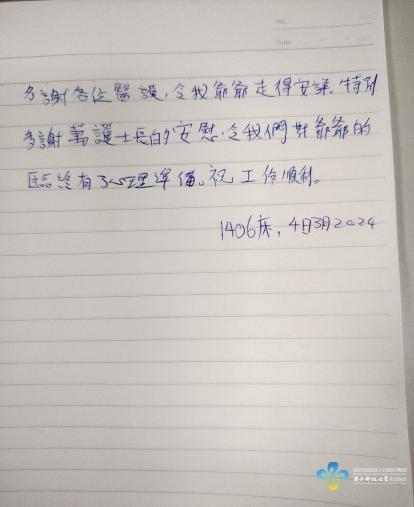 No.
Date
多謝各位醫護，令我爺爺走得安詳。特別
多謝萬護士長的安慰，令我們對爺爺的
臨終有了心理準備。祝工作順利。
1406床，4日3月2024